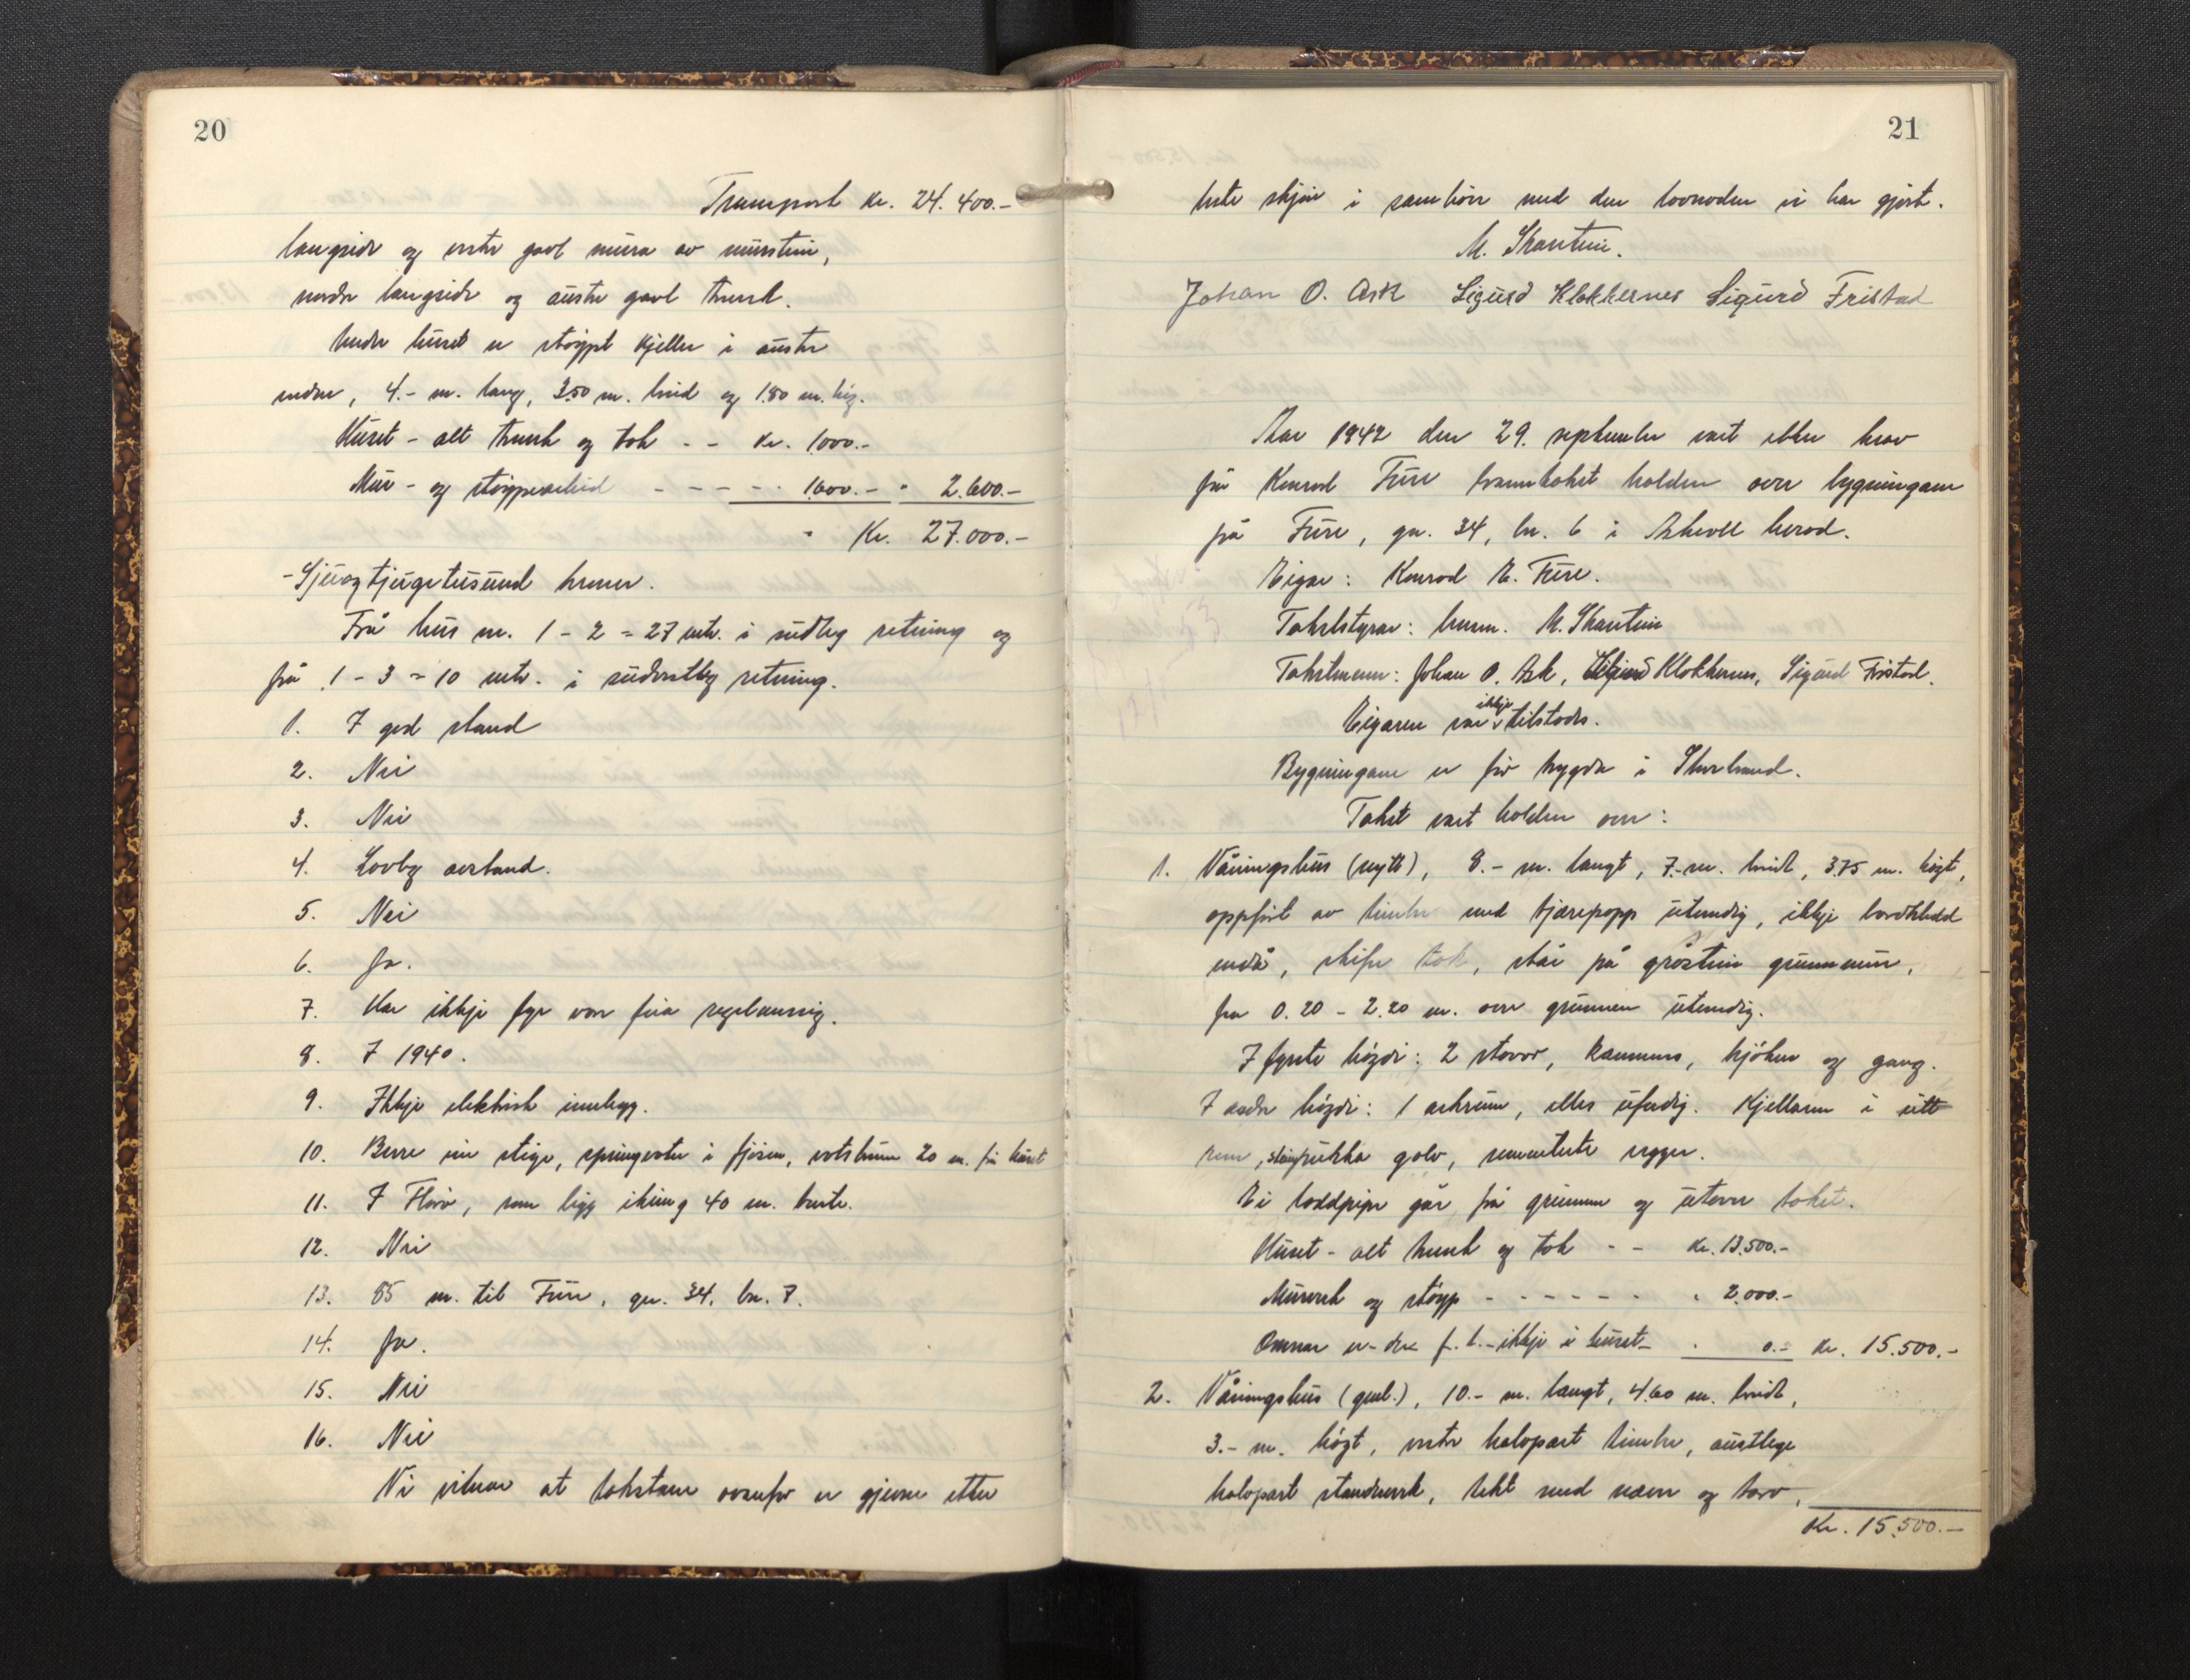 20
Transport kr. 24.400.-
langside og vestre gavl mura av murstein,
nordre langside og austre gavl treverk.
Under huset er støypt kjeller i austre
enden, 4.- m. lang, 3.50 m. breid og 1.80 m. høg.
Huset - alt treverk og tak - - kr. 1000.-
Mur- og støypearbeid - - - - - 1600.- " 2.600.-
" Kr. 27.000.-
- Sjuogtjugetusund kroner.
Frå hus nr. 1 - 2 = 27 mtr. i sudleg retning og
frå 1 - 3 = 10 mtr. i sudvestleg retning.
1. I god stand
2. Nei
3. Nei
4. Lovleg avstand.
5. Nei
6. Ja.
7. Har ikkje fyr von feia regelmessig.
8. I 1940.
9. Ikkje elektrisk innlegg.
10. Berre ein stige, springvatn i fjøsen, vatsbrunn 20 m. frå huset
11. I Florø, som ligg ikring 40 m. borte.
12. Nei
13. 85 m. til Fure, gn. 34, bn. 7.
14. Ja.
15. Nei
16. Nei
Vi vitnar at takstane ovanfor er gjevne etter
21
beste skjøn i samhøve med den lovnaden vi har gjort.
M. Skarstein.
Johan O. Ask Sigurd Klokkernes Sigurd Fristad
Aar 1942 den 29. september vart etter krav
frå Konrad Fure branntakst halden over bygningane
på Fure, gn. 34, bn. 6 i Askvoll herad.
Eigar: Konrad E. Fure.
Takststyrar: lensm. M. Skarstein
Takstmenn: Johan O. Ask, Sigurd Klokkernes, Sigurd Fristad.
Eigaren var ikkje tilstades.
Bygningane er før trygda i Storbrand.
Takst vart halden over:
1. Våningshus (nytt), 8.- m. langt, 7.- m. breidt, 3.75 m. høgt,
oppført av timbr med tjærepapp utvendig, ikkje bordkledd
endå, skifer tak, står på gråstein grunnmur,
fra 0.20 - 2.20 m. over grunnen utvendig.
I fyrste høgdi: 2 stovor, kammers, kjøken og gang.
I andre høgdi: 1 arkrum, elles uferdig. Kjellaren i eitt
rom, steinpukka golv, sementerte vegger.
Ei loddpipe går frå grunnen og utover taket.
Huset - alt treverk og tak - - kr. 13.500.-
Murverk og støyp - - - - - - " 2.000.-
Omnar er - det f. t. - ikkje i huset - " 0.- kr. 15.500.-
2. Våningshus (gml.), 10.- m. langt, 4.60 m. breidt,
3.- m. høgt, vestre halvpart timbr, austlege
halvpart standverk, tekt med næver og torv,
Kr. 15.500.-